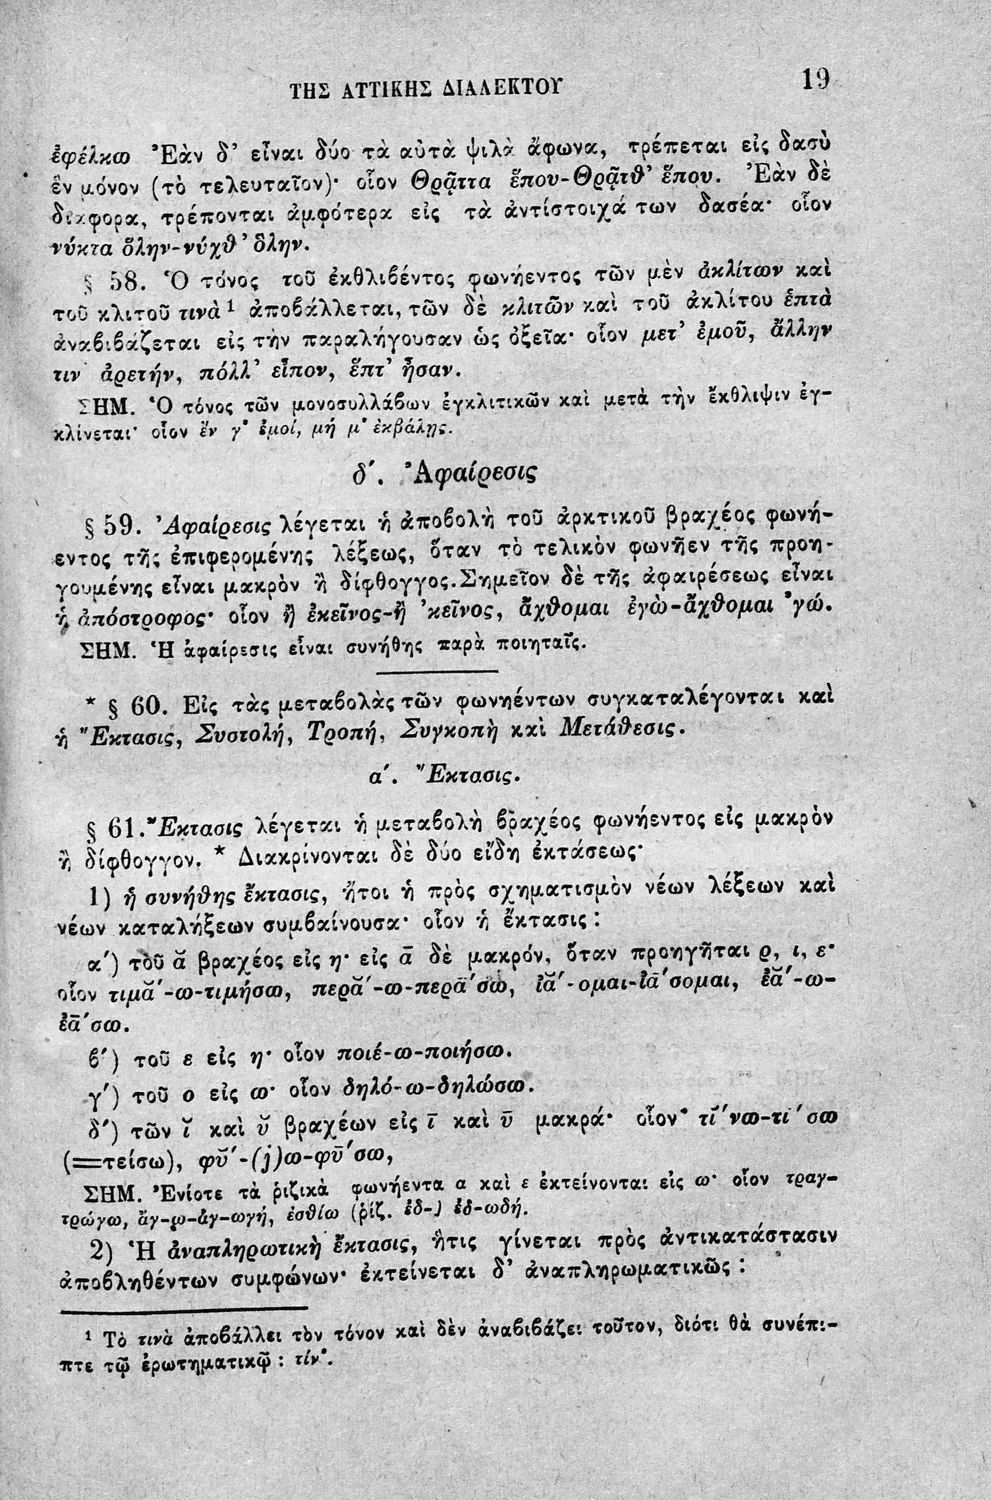 ΤΗΣ ΑΤΤΙΚΗΣ ΔΙΑΛΕΚΤΟΥ 19
ἐφέλκω Ἐὰν δ' εἶναι δύο τὰ αὐτὰ ψιλὰ ἄφωνα, τρέπεται εἰς δασὺ
ἓν μόνον (τὸ τελευταῖον)· οἷον Θρᾷττα ἕπου-Θρᾷτθ' ἕπου. Ἐὰν δὲ
διάφορα, τρέπονται ἀμφότερα εἰς τὰ ἀντίστοιχά των δασέα· οἷον
νύκτα ὅλην-νύχθ' ὅλην.
§ 58. Ὁ τόνος τοῦ ἐκθλιβέντος φωνήεντος τῶν μὲν ἀκλίτων καὶ
τοῦ κλιτοῦ τινὰ¹ ἀποβάλλεται, τῶν δὲ κλιτῶν καὶ τοῦ ἀκλίτου ἑπτὰ
ἀναβιβάζεται εἰς τὴν παραλήγουσαν ὡς ὀξεῖα· οἷον μετ' ἐμοῦ, ἄλλην
τιν' ἀρετήν, πόλλ' εἶπον, ἕπτ' ἦσαν.
ΣΗΜ. Ὁ τόνος τῶν μονοσυλλάβων ἐγκλιτικῶν καὶ μετὰ τὴν ἔκθλιψιν ἐγ-
κλίνεται· οἷον ἕν γ' ἐμοί, μή μ' ἐκβάλῃς.
δ'. Ἀφαίρεσις
§ 59. Ἀφαίρεσις λέγεται ἡ ἀποβολὴ τοῦ ἀρκτικοῦ βραχέος φωνή-
εντος τῆς ἐπιφερομένης λέξεως, ὅταν τὸ τελικὸν φωνῆεν τῆς προη-
γουμένης εἶναι μακρὸν ἢ δίφθογγος. Σημεῖον δὲ τῆς ἀφαιρέσεως εἶναι
ἡ ἀπόστροφος· οἷον ἢ ἐκεῖνος-ἢ 'κεῖνος, ἄχθομαι ἐγὼ-ἄχθομαι 'γώ.
ΣΗΜ. Ἡ ἀφαίρεσις εἶναι συνήθης παρὰ ποιηταῖς.
* § 60. Εἰς τὰς μεταβολὰς τῶν φωνηέντων συγκαταλέγονται καὶ
ἡ Ἔκτασις, Συστολή, Τροπή, Συγκοπὴ καὶ Μετάθεσις.
α'. Ἔκτασις.
§ 61. Ἔκτασις λέγεται ἡ μεταβολὴ βραχέος φωνήεντος εἰς μακρὸν
ἢ δίφθογγον. * Διακρίνονται δὲ δύο εἴδη ἐκτάσεως·
1) ἡ συνήθης ἔκτασις, ἤτοι ἡ πρὸς σχηματισμὸν νέων λέξεων καὶ
νέων καταλήξεων συμβαίνουσα· οἷον ἡ ἔκτασις:
α') τοῦ ᾰ βραχέος εἰς η· εἰς ᾱ δὲ μακρόν, ὅταν προηγῆται ρ, ι, ε·
οἷον τιμᾰ'-ω-τιμήσω, περᾰ'-ω-περᾱ'σω, ἰᾰ'-ομαι-ἰᾱ'σομαι, ἐᾰ'-ω-
ἐᾱ'σω.
β') τοῦ ε εἰς η· οἷον ποιέ-ω-ποιήσω.
γ') τοῦ ο εἰς ω· οἷον δηλό-ω-δηλώσω.
δ') τῶν ῐ καὶ ῠ βραχέων εἰς ῑ καὶ ῡ μακρά· οἷον· τῐ'νω-τι'σω
(=τείσω), φῠ'-(j)ω-φῡ'σω,
ΣΗΜ. Ἐνίοτε τὰ ῥιζικὰ φωνήεντα α καὶ ε ἐκτείνονται εἰς ω· οἷον τραγ-
τρώγω, ἄγ-ω-ἀγ-ωγή, ἐσθίω (ῥίζ. ἐδ-) ἐδ-ωδή.
2) Ἡ ἀναπληρωτικὴ ἔκτασις, ἥτις γίνεται πρὸς ἀντικατάστασιν
ἀποβληθέντων συμφώνων· ἐκτείνεται δ' ἀναπληρωματικῶς:
¹ Τὸ τινὰ ἀποβάλλει τὸν τόνον καὶ δὲν ἀναβιβάζει τοῦτον, διότι θὰ συνέπι-
πτε τῷ ἐρωτηματικῷ : τίν'.